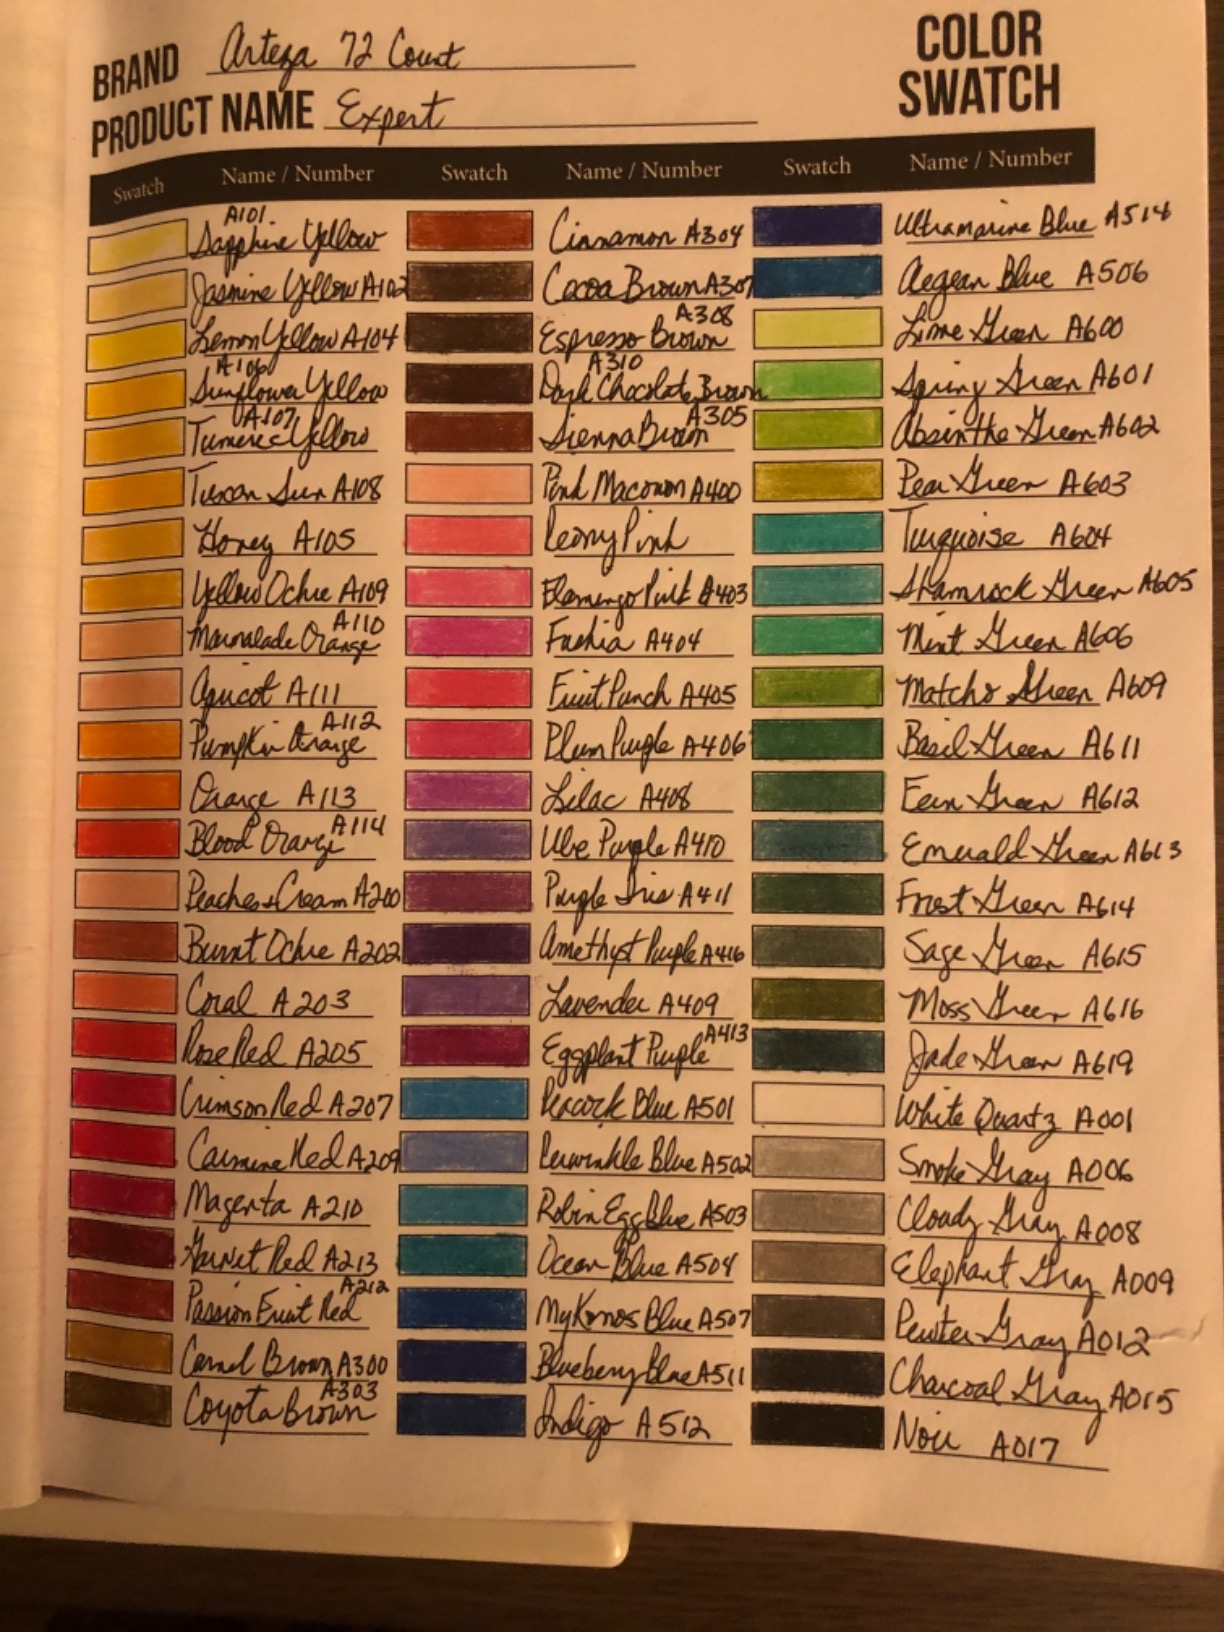 BRAND Arteza 72 Count
PRODUCT NAME Expert
COLOR
SWATCH
Swatch Name / Number Swatch Name / Number Swatch Name / Number
A101
Sapphire Yellow
Jasmine Yellow A102
Lemon Yellow A104
A106
Sunflower Yellow
A107
Tumeric Yellow
Tuscan Sun A108
Honey A105
Yellow Ochre A109
A110
Marmalade Orange
Apricot A111
A112
Pumpkin Orange
Orange A113
A114
Blood Orange
Peaches + Cream A200
Burnt Ochre A202
Coral A203
Rose Red A205
Crimson Red A207
Carmine Red A209
Magenta A210
Garnet Red A213
A212
Passion Fruit Red
Camel Brown A300
A303
Coyota Brown
Cinnamon A304
Cocoa Brown A307
A308
Espresso Brown
A310
Dark Chocolate Brown
A305
Sienna Brown
Pink Macoron A400
Peony Pink
Flamingo Pink A403
Fushia A404
Fruit Punch A405
Plum Purple A406
Lilac A408
Ube Purple A410
Purple Iris A411
Amethyst Purple A416
Lavender A409
A413
Eggplant Purple
Peacock Blue A501
Periwinkle Blue A502
Robin Egg Blue A503
Ocean Blue A504
MyKonos Blue A507
Blueberry Blue A511
Indigo A512
Ultramarine Blue A514
Aegean Blue A506
Lime Green A600
Spring Green A601
Absinthe Green A602
Pear Green A603
Turquoise A604
Shamrock Green A605
Mint Green A606
Matcha Green A609
Basil Green A611
Fern Green A612
Emerald Green A613
Frost Green A614
Sage Green A615
Moss Green A616
Jade Green A619
White Quartz A001
Smoke Gray A006
Cloudy Gray A008
Elephant Gray A009
Pewter Gray A012
Charcoal Gray A015
Noir A017